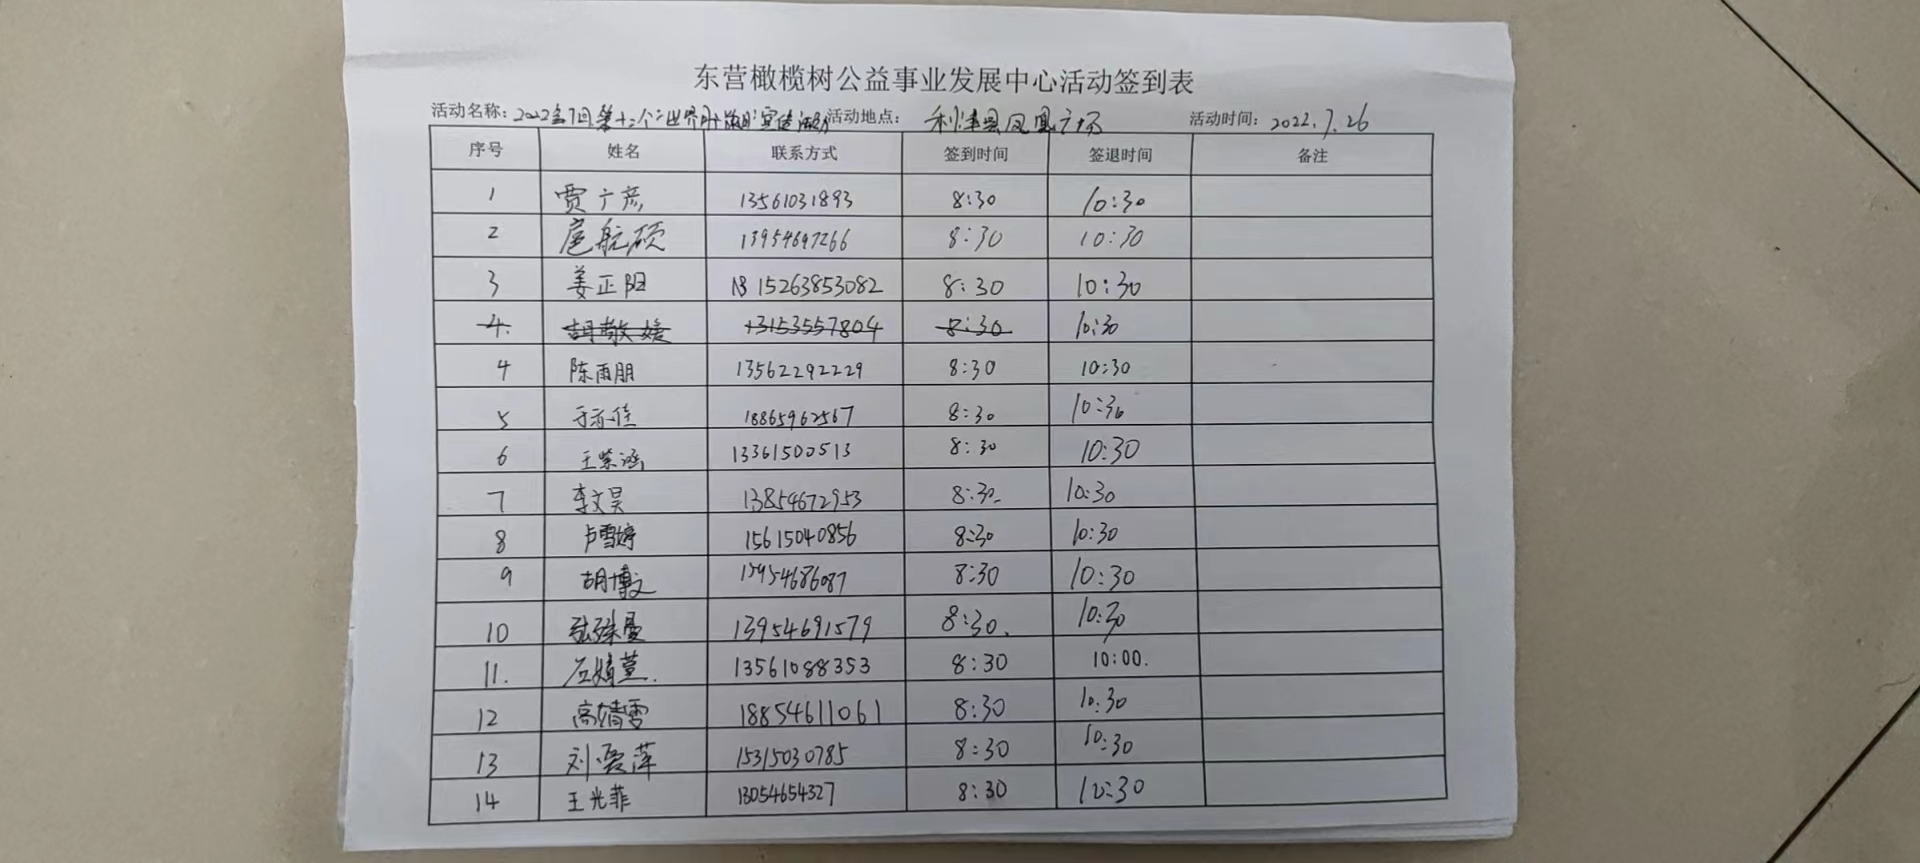 东营橄榄树公益事业发展中心活动签到表
活动名称: 活动地点: 利津县凤凰广场 活动时间: 2022.7.26
序号 姓名 联系方式 签到时间 签退时间 备注
1 贾广彦 13561031893 8:30 10:30
2 扈航硕 13954697266 8:30 10:30
3 姜正阳 15263853082 8:30 10:30
4. 胡敬媛 13153557804 8:30 10:30
4 陈雨朋 13562292229 8:30 10:30
5 18865962567 8:30 10:30
6 王紫涵 13361500513 8:30 10:30
7 李文昊 13854672953 8:30 10:30
8 卢雪婷 15615040856 8:30 10:30
9 胡博文 8:30 10:30
10 13954691579 8:30. 10:30
11. 13561088353 8:30 10:00.
12 高靖雪 18854611061 8:30 10:30
13 15315030785 8:30 10:30
14 王光菲 13054654327 8:30 10:30